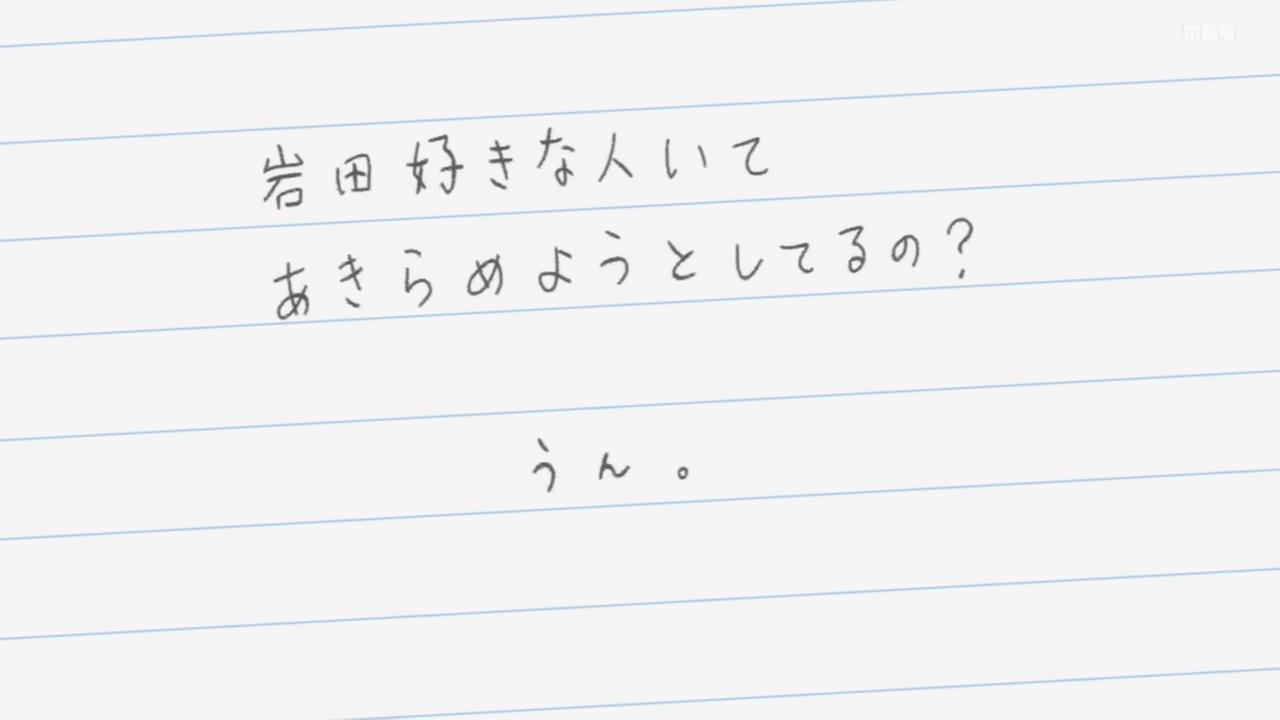 MBS
岩田好きな人いて
あきらめようとしてるの?
うん。